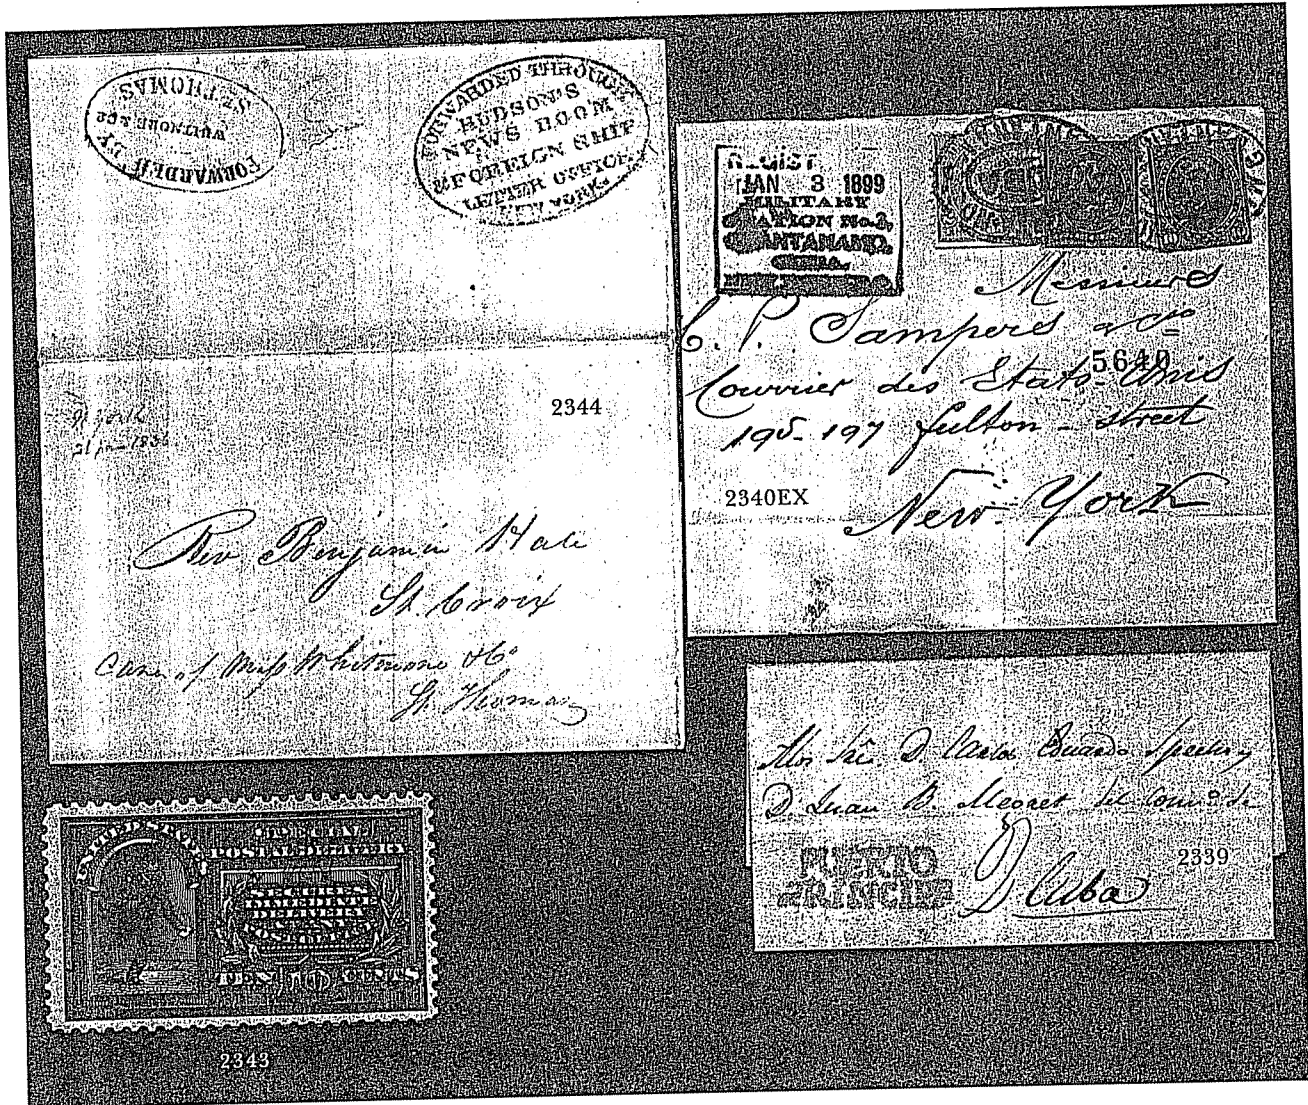 FORWARDED BY
WHITMORE & Co
ST THOMAS
FORWARDED THROUGH
HUDSON'S
NEWS ROOM
& FOREIGN SHIP
LETTER OFFICE
NEW YORK
2344
Rev Benjamin Hale
St. Croix
Care of Mess Whitmore & Co
St. Thomas
REGIST
JAN 3 1899
MILITARY
STATION No. 3,
GUANTANAMO,
CUBA.
Messieurs
C. P. Sampers & Cie
5640
Courrier des Etats-Unis
195-197 fulton-street
2340EX
New-York
D. Juan B.
PUERTO
PRINCIPE
D Cuba
2339
UNITED STATES
SPECIAL
POSTAL DELIVERY
SECURES
IMMEDIATE
DELIVERY
TEN CENTS
2343